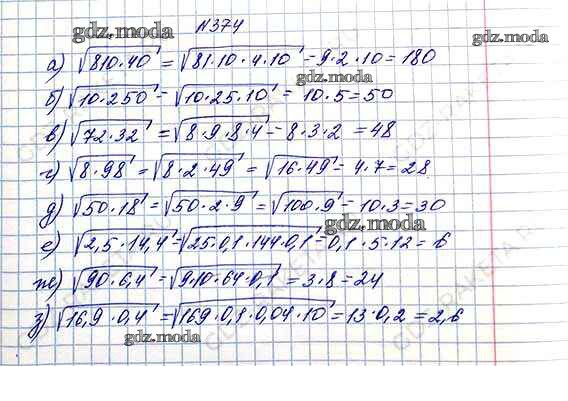 №374
gdz.moda
gdz.moda
а) √810·40 = √81·10·4·10 = 9·2·10 = 180
gdz.moda
б) √10·250 = √10·25·10 = 10·5 = 50
в) √72·32 = √8·9·8·4 = 8·3·2 = 48
г) √8·98 = √8·2·49 = √16·49 = 4·7 = 28
д) √50·18 = √50·2·9 = √100·9 = 10·3 = 30
gdz.moda
е) √2,5·14,4 = √25·0,1·144·0,1 = 0,1·5·12 = 6
ж) √90·6,4 = √9·10·64·0,1 = 3·8 = 24
з) √16,9·0,4 = √169·0,1·0,04·10 = 13·0,2 = 2,6
gdz.moda